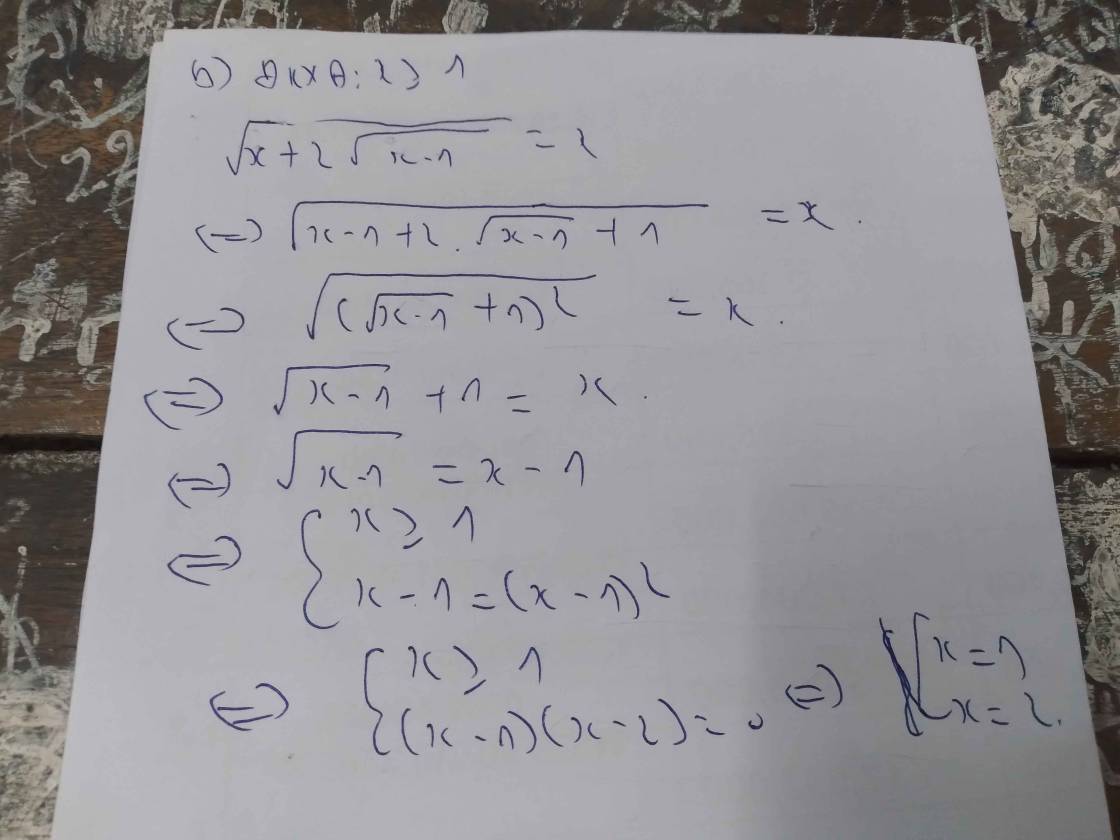 b) ĐKXĐ: x ≥ 1
√(x + 2√(x-1)) = 2
⇔ √(x-1+2.√(x-1) + 1) = x.
⇔ √((√(x-1) + 1)²) = x.
⇔ √(x-1) + 1 = x.
⇔ √(x-1) = x - 1
⇔ { x ≥ 1
x - 1 = (x - 1)²
⇔ { x ≥ 1
(x - 1)(x - 2) = 0 ⇔ [ x = 1
x = 2.